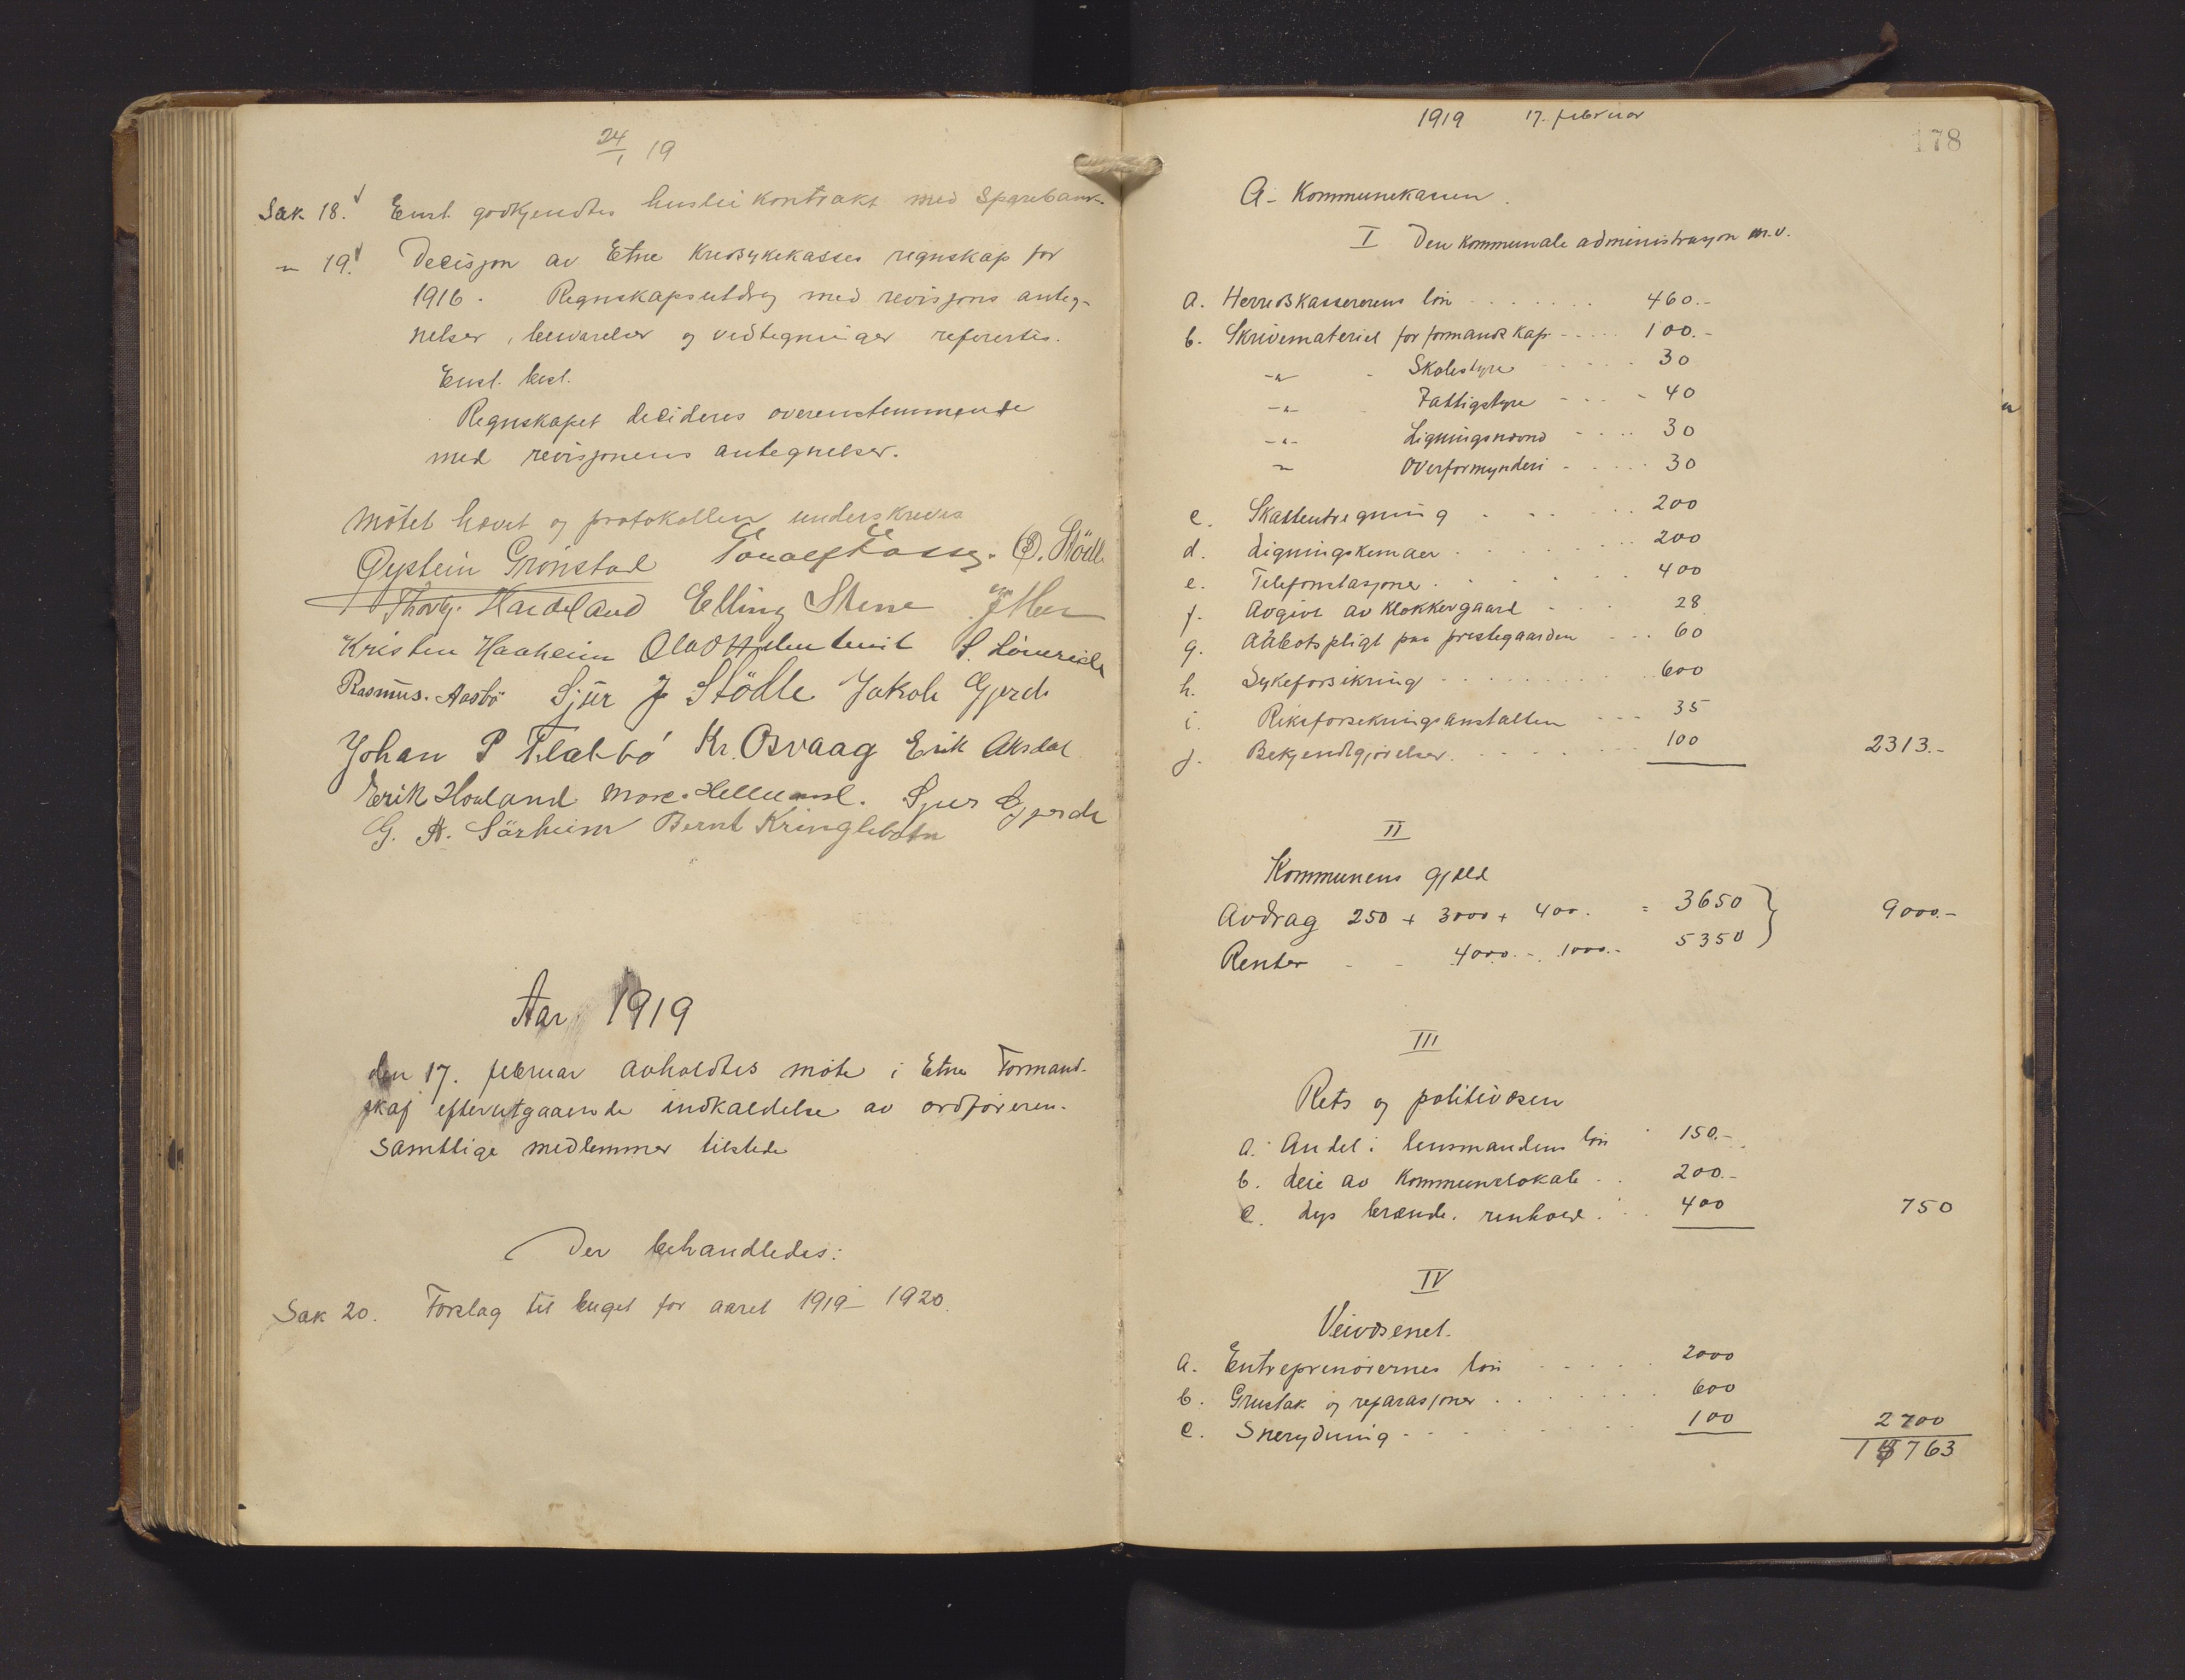 24/1 19
Sak 18. Enst. godkjendtes husleikontrakt med Sparebank.
" 19. Decisjon av Etne Kredssykekasses regnskap for
1916. Regnskapsutdrag med revisjons anteg-
nelser, besvarelser og vedtegninger refertes.
Enst. besl.
Regnskapet decideres overenstemmende
med revisjonens antegnelser.
Møtet hævet og protokollen underskreves
Øystein Grønstad Ø. Stödle
Thorbj. Hardeland Elling Stene
Kristen Haaheim Olav
Rasmus. Aasbö Sjur J Stödle Jakob Gjerde
Johan P Flatebö Kr. Osvaag Erik Aksdal
Erik Hovland Sjur Gjerde
G. A. Särheim Bernt Kringlebotn
Aar 1919
den 17. februar avholdtes møte i Etne Formand-
skap efter utgaaende indkaldelse av ordføreren.
Samtlige medlemmer tilstede
Der behandledes:
Sak 20. Forslag til buget for aaret 1919 - 1920.
1919 17. februar
178
A - Kommunekassen.
I Den kommunale administrasjon m.v.
a. Herredskassererens løn 460.-
b. Skrivemateriel for formandskap 100.-
-"- Skolestyre 30
-"- Fattigstyre 40
-"- Ligningsnævnd 30
" Overformynderi 30
c. Skatteutregning 200
d. Ligningskemaer 200
e. Telefonstasjoner 400
f. Avgivt av Klokkergaard 28
g. Aabotspligt paa prestegaarden 60
h. Sykeforsikring 600
i. Riksforsekringsanstalten 35
j. Bekjendtgjørelser. 100 2313.-
II
Kommunens gjæld
Avdrag 250 + 3000 + 400. = 3650 } 9000.-
Renter - - 4000.-. 1000.- 5350
III
Rets og politivæsen
a. Andel i lensmandens løn 150.-
b. Leie av Kommunelokale 200.-
c. Lys brænde, renhold. 400 750
IV
Veivæsenet.
a. Entreprenørernes løn 2000
b. Grustak og reparasjoner 600
c. Snerydning 100 2700
14763